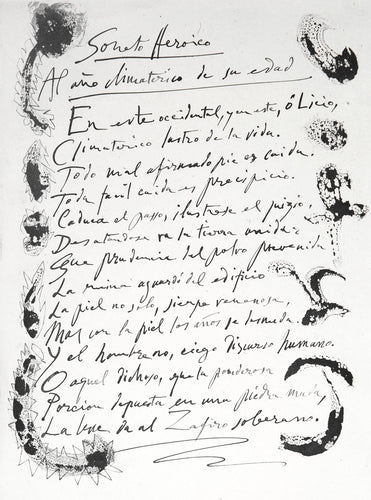 Soneto Heroico
Al año climaterico de su edad
En este occidental, y en este, ô Licio,
Climaterico lustro de la vida.
Todo mal afirmado pie es caida.
Toda facil caida es precipicio.
Caduca el paso, ilustrese el juizio,
Desatandose va la tierra unida:
Que prudencia del polvo prevenida
La ruina aguardó del edificio
La piel no sólo, sierpe venenosa,
Mas con la piel los años se desnuda.
Y el hombre no, ciego discurso humano.
O aquel dichoso, que la ponderosa
Porcion depuesta en una piedra muda,
La leve da al Zafiro soberano.